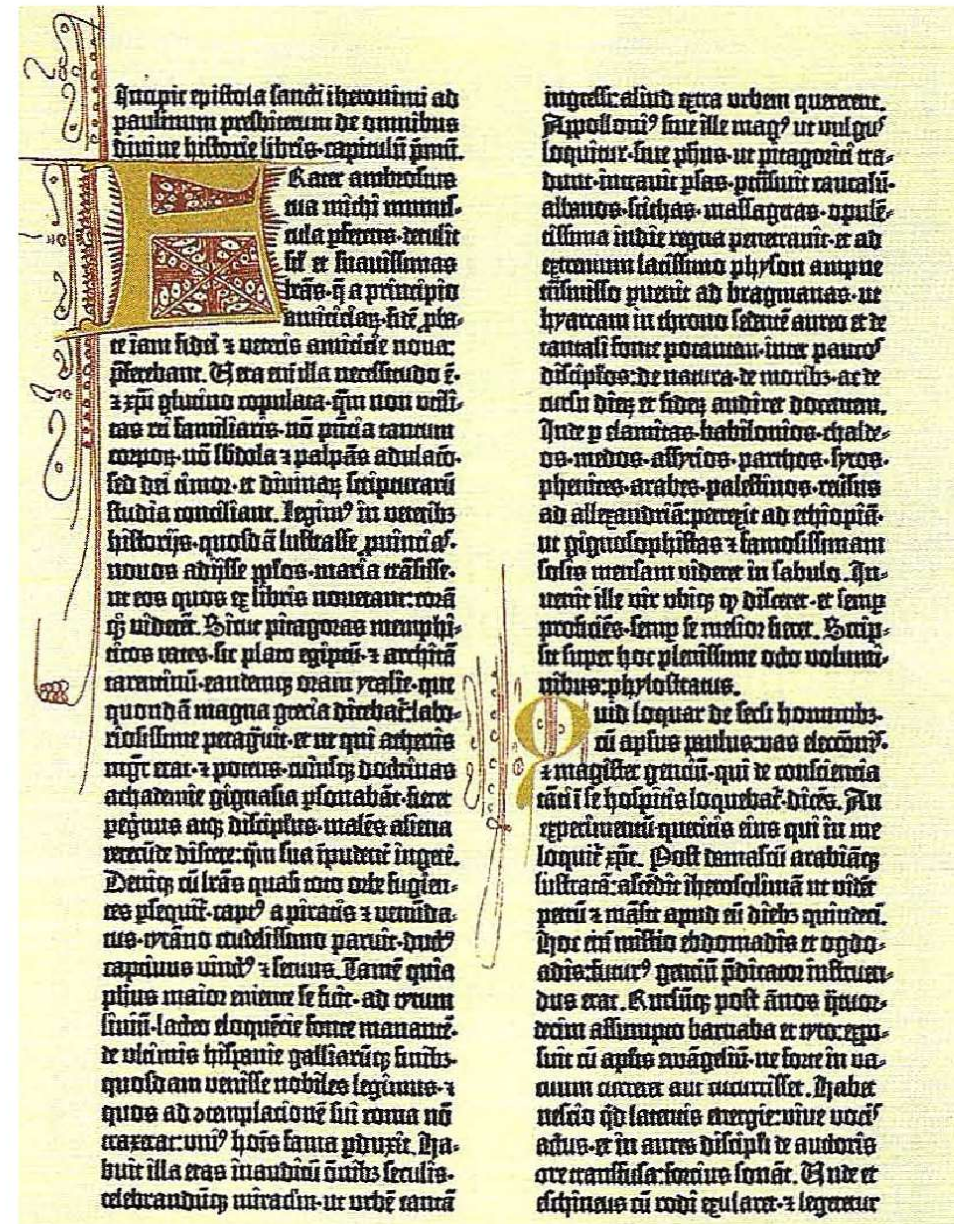 Incipit epistola sancti iheronimi ad
paulinum presbiterum de omnibus
divine historie libris·capitulũ p̃mũ.
Frater ambrosius
tua michi munus-
cula pferens·detulit
sil̃ et suavissimas
lr̃as·q̃ a principio
amiciciaꝝ·fidẽ ꝓba-
te iam fidei ⁊ veteris amicicie nova:
p̃ferebant. Vera em̃ illa necessitudo ẽ·
⁊ xp̃i glutino copulata·qm̃ non utili-
tas rei familiaris·nõ p̃ncia tantum
corpoꝝ·nõ sb̃dola ⁊ palpãs adulac̃o·
sed dei timor·et divinaꝝ scripturarũ
studia conciliant. Legimꝰ in veteribꝫ
historijs·quosdã lustrasse ꝓvinciaſ·
novos adijsse pp̃los·maria trãsisse·
ut eos quos ex libris noverant: corã
qꝫ viderẽt. Sicut pitagoras memphi-
ticos vates·sic plato egiptũ·⁊ architã
tarentinũ·eandemqꝫ oram ytalie·que
quondã magna grecia dicebat̃: labo-
riosissime peragᵛit·et ut qui athenis
mgr̃ erat·⁊ potens·cuiusqꝫ doctrinas
achademie gignasia psonabãt·fieret
pegrinus atqꝫ discipl̃us·malẽs aliena
verecũde discere: qm̃ sua ĩpudent̃ ingere̾.
Deniqꝫ cũ lr̃as quasi toto orbe fugien-
tes psequit̃·captꝰ a piratis ⁊ venũda-
tus·tyrãno crudelissimo paruit·ductꝰ
captivus vinctꝰ ⁊ servus. Tamẽ quia
ph̃us maior emente se fuit·ad tytum
livium·lacteo eloquẽtie fonte manantẽ·
de ultimis hispanie galliarũqꝫ finibꝫ·
quosdam venisse nobiles legimus·⁊
quos ad ɔtemplacionẽ sui roma nõ
traxerat: uniꝰ hoĩs fama pduxit. Ha-
buit illa etas inauditũ õnibꝫ seculis·
celebrandũqꝫ miraclm̃·ut urbẽ tantã
ingressi: aliud extra urbem quererent.
Appolloniꝰ sive ille magꝰ ut vulguſ
loquitur·sive ph̃us·ut pitagorici tra-
dunt·intravit psas·ptrãsivit caucasũ·
albanos·scithas·massagetas·opulẽ-
tissima indie regna penetravit·et ad
extremum latissimo physon ampne
trãsmisso puenit ad bragmanas·ut
hyarcam in throno sedentẽ aureo et de
tantali fonte potantem·inter paucoſ
discipl̃os: de natura·de moribꝫ·ac de
cursu dieꝝ et sideꝝ audiret docentem.
Inde p elamitas·babilonios·chalde-
os·medos·assyrios·parthos·syros·
phenices·arabes·palestinos·reversus
ad allexandriã: perrexit ad ethiopiã·
ut gignosophistas ⁊ famosissimam
solis mensam videret in sabulo. In-
venit ille vir ubiqꝫ qđ disceret·et semp
proficiẽs·semp se melior fieret. Scrip-
sit super hoc plenissime octo volumi-
nibus: phylostratus.
Quid loquar de secl̃i hominibꝫ·
cũ apl̃us paulus: vas electõniſ·
⁊ magister genciũ·qui de consciencia
tãti ĩ se hospitis loquebat̃·dicẽs. An
experimentũ queritis eius qui in me
loquit̃ xp̃c. Post damascũ arabiãqꝫ
lustratã: ascẽdit iherosolimã ut viđet
petrũ ⁊ mãsit apud eũ diebꝫ quindeci.
Hoc em̃ misterio ebdomadis et ogdo-
adis: futurꝰ genciũ p̃dicator instruen-
dus erat. Rursũqꝫ post ãnos q̃tuor-
decim assumpto barnaba et tyto: expo-
suit cũ apl̃is euãgeliũ·ne forte in va-
cuum curreret aut cucurrisset. Habet
nescio qđ latentis energie: vive vociſ
actus·et in aures discipl̃i de auctoris
ore transfusa: forcius sonat. Unde et
eschineus cũ rodi exularet·⁊ legeretur